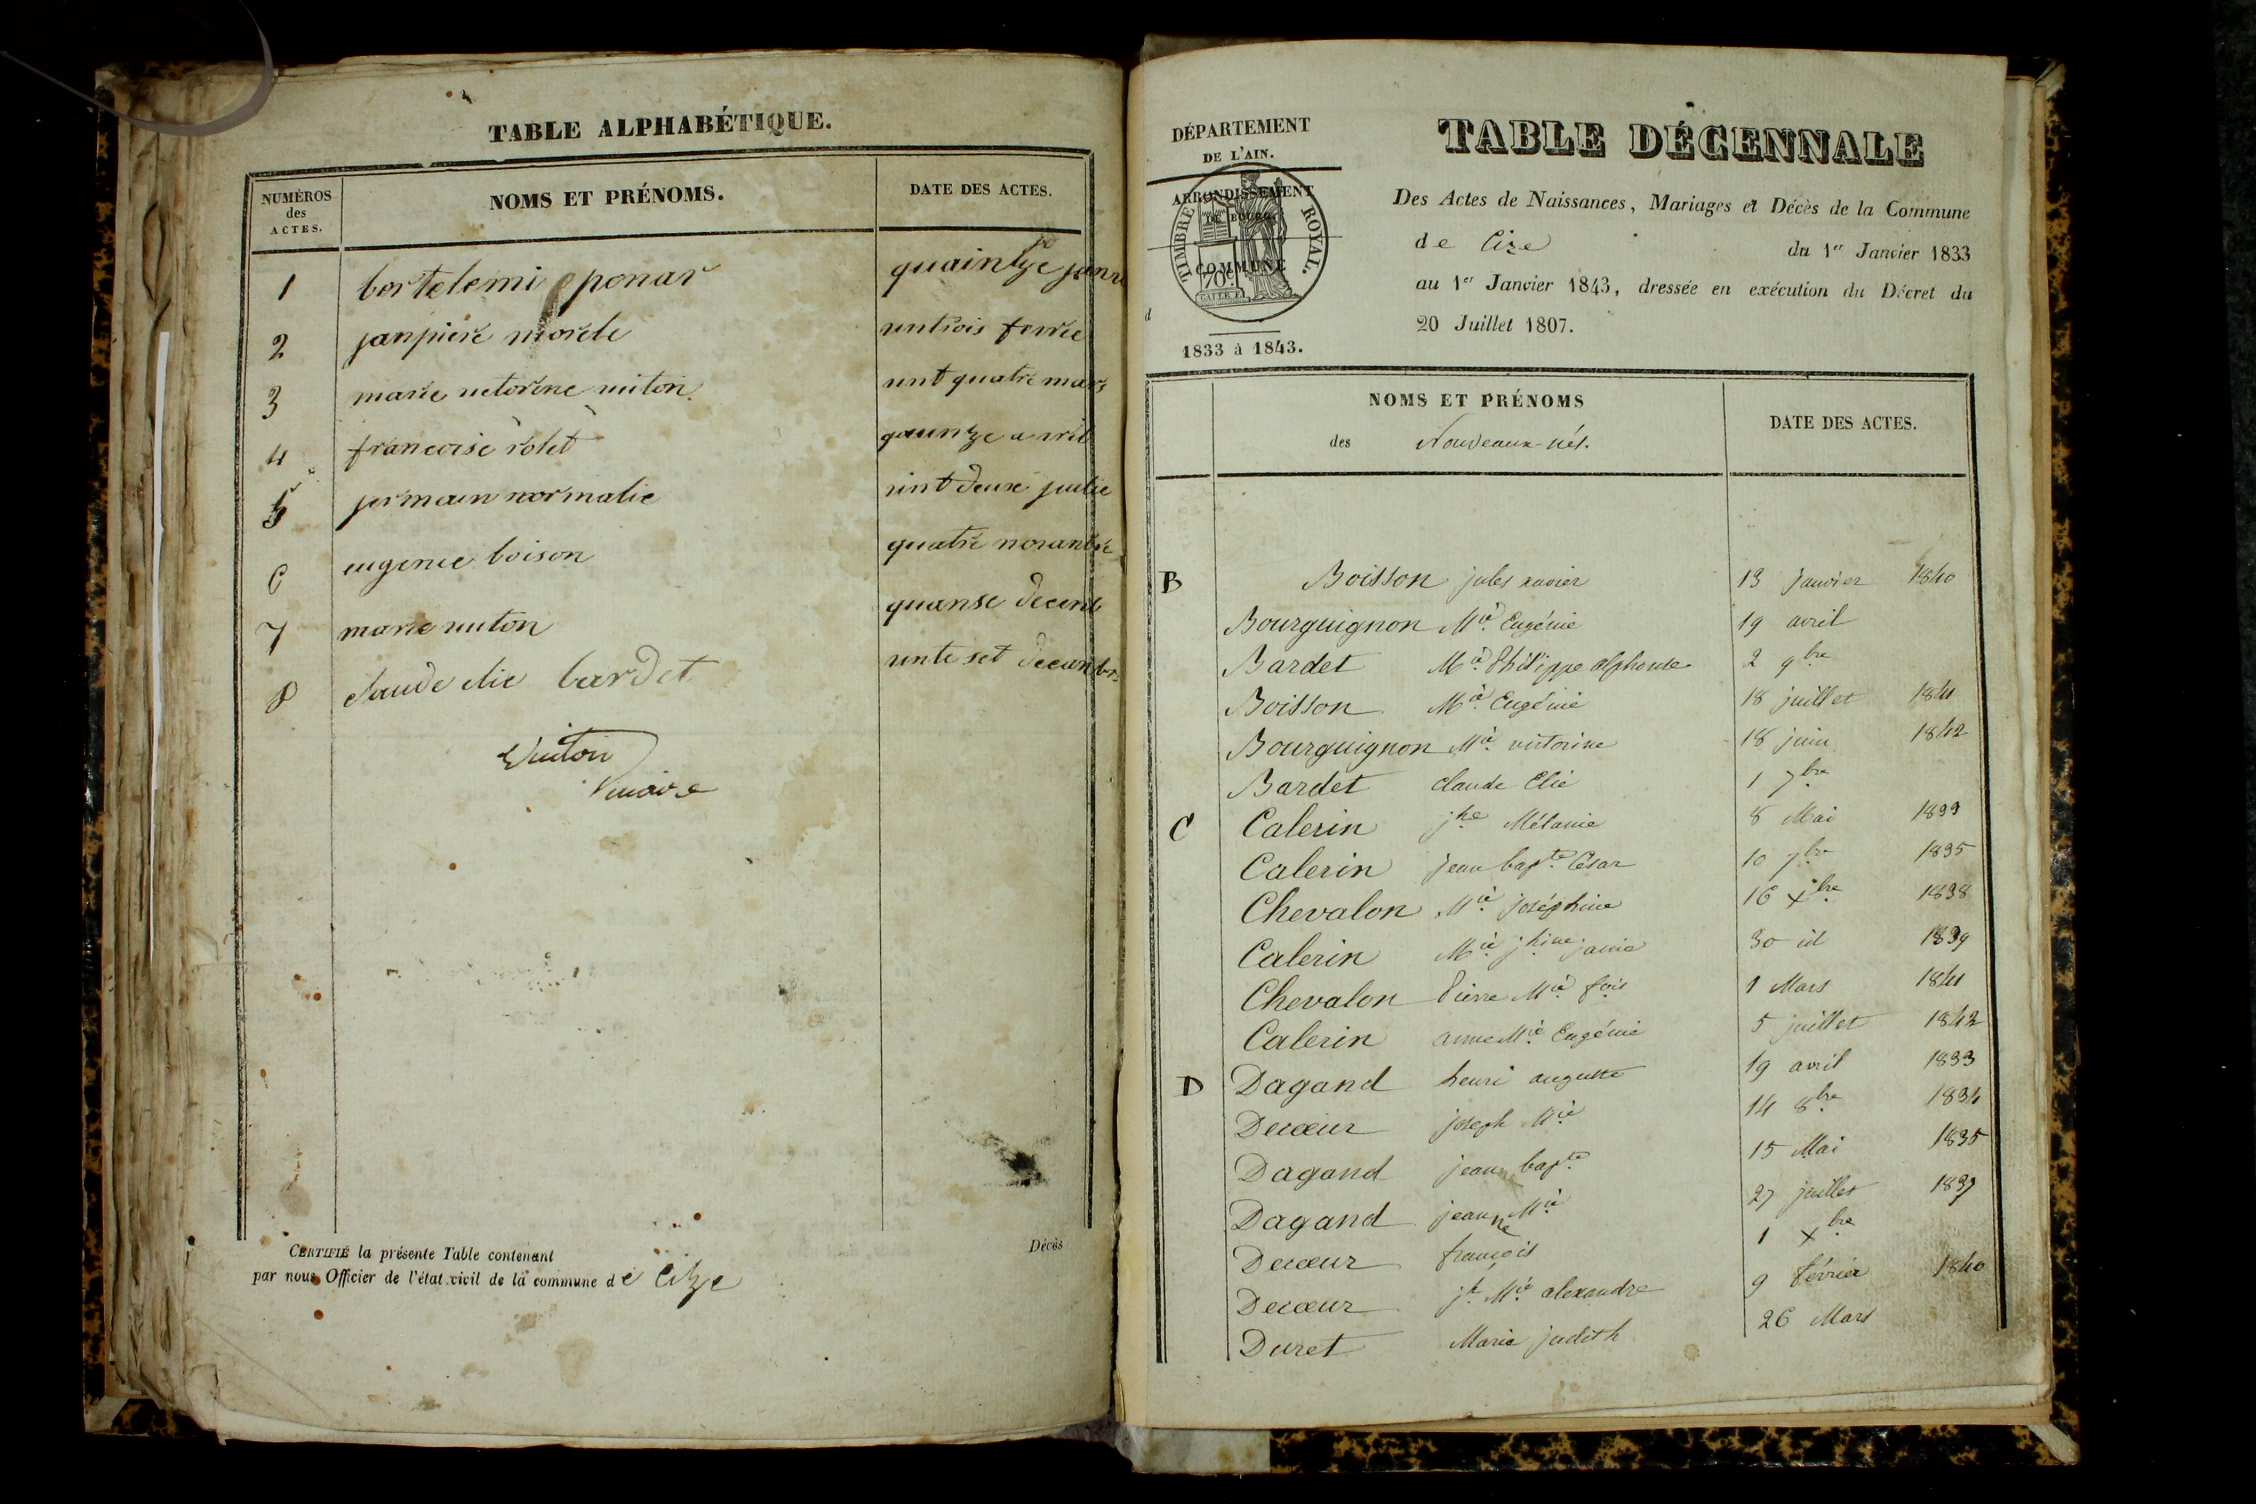 TABLE ALPHABÉTIQUE.
NUMÉROS des ACTES. NOMS ET PRÉNOMS. DATE DES ACTES.
1 bertelemi ponar quaintze janvie
2 janpiere morele untrois fevrie
3 marie uctorine uiton. unt quatre mars
4 francoise rolet quunze avril
5 jermain normalie uint deuxe julie
6 eugenie boison quatre novanbre
7 marie uuton quanse decenb
8 claude elie bardet unte set decunbr
Vuiton
maire
CERTIFIÉ la présente Table contenant Décès
par nous Officier de l'état civil de la commune de Cize
DÉPARTEMENT
DE L'AIN.
ARRONDISSEMENT
DE BOURG.
COMMUNE
d
TIMBRE ROYAL.
70c
1833 à 1843.
TABLE DÉCENNALE
Des Actes de Naissances, Mariages et Décès de la Commune
de Cize du 1er Janvier 1833
au 1er Janvier 1843, dressée en exécution du Décret du
20 Juillet 1807.
NOMS ET PRÉNOMS
des Nouveaux-nés.
DATE DES ACTES.
B Boisson jules xavier 13 janvier 1840
Bourguignon Mie Eugénie 19 avril
Bardet Mie Philippe alphonse 2 9bre
Boisson Mie Eugénie 18 juillet 1841
Bourguignon Mie victorine 18 juin 1842
Bardet claude Elie 1 7bre
C Calerin jhe Mélanie 8 Mai 1833
Calerin jean bapte César 10 7bre 1835
Chevalon Mie joséphine 16 xbre 1838
Calerin Mie jhine 30 id 1839
Chevalon Pierre Mie fois 1 Mars 1841
Calerin anne Mie Eugénie 5 juillet 1842
D Dagand henri auguste 19 avril 1833
Decœur joseph Mie 14 8bre 1834
Dagand jean bapte 15 Mai 1835
Dagand jeanne Mie 27 juillet 1837
Decœur françois 1 xbre
Decœur jh Mie alexandre 9 février 1840
Duret Marie judith 26 Mars